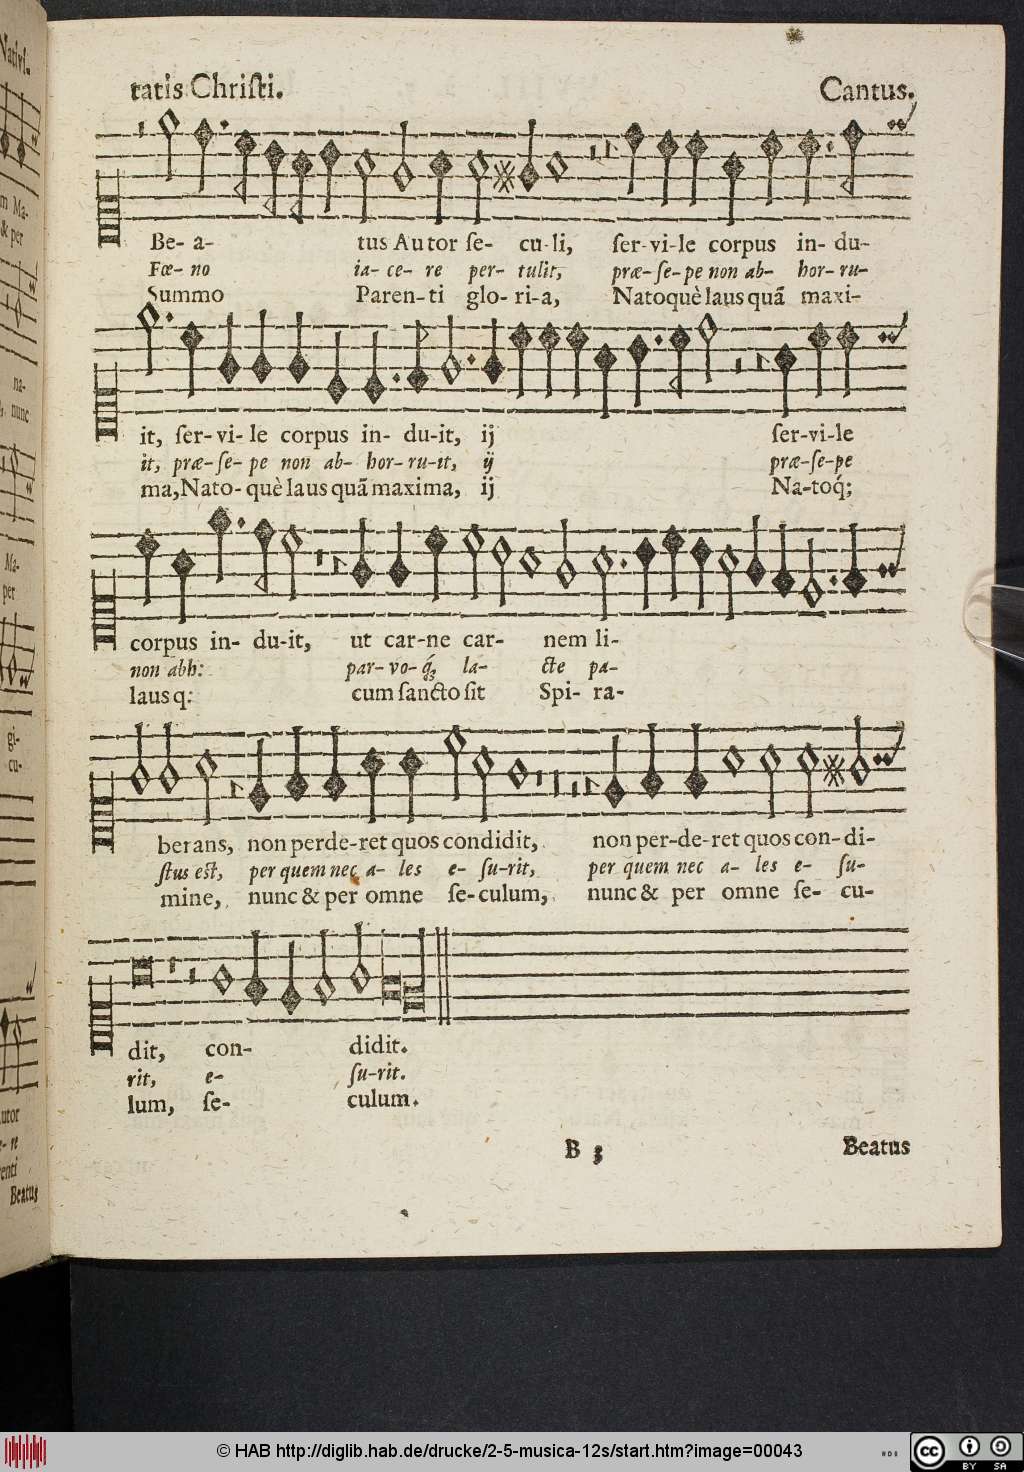 tatis Chriſti. Cantus.
Be- a- tus Autor ſe- cu-li, ſer-vi-le corpus in- du-
Fœ- no ia- ce- re per- tulit, præ-ſe-pe non ab- hor-ru-
Summo Paren-ti glo-ri-a, Natoquè laus quã maxi-
it, ſer-vi-le corpus in- du-it, ij ſer-vi-le
it, præ-ſe-pe non ab- hor-ru-it, ij præ-ſe-pe
ma, Nato-què laus quã maxima, ij Na-toq́;
corpus in- du-it, ut car-ne car- nem li-
non abh: par-vo-q́; la- cte pa-
laus q: cum ſancto ſit Spi- ra-
berans, non perde-ret quos condidit, non per-de-ret quos con-di-
ſtus eſt, per quem nec a- les e- ſu-rit, per quem nec a- les e- ſu-
mine, nunc & per omne ſe-culum, nunc & per omne ſe- cu-
dit, con- didit.
rit, e- ſu-rit.
lum, ſe- culum.
B 3 Beatus
Nativi-
m Ma-
& per
na-
nunc
Ma-
per
gi-
cu-
utor
e- re
renti
Beatus
© HAB http://diglib.hab.de/drucke/2-5-musica-12s/start.htm?image=00043
cc BY SA